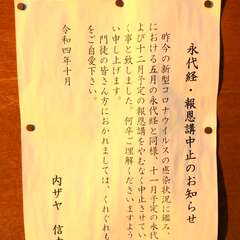 永代経・報恩講中止のお知らせ
昨今の新型コロナウイルスの感染状況に鑑み、
における五月の永代経と同様、十一月予定の永代
よび十二月予定の報恩講をやむなく中止させてい
く事と致しました。何卒ご理解くださいますよう
い申し上げます。
門徒の皆さん方におかれましては、くれぐれも
をご自愛下さい。
令和四年十月
内ザヤ 信